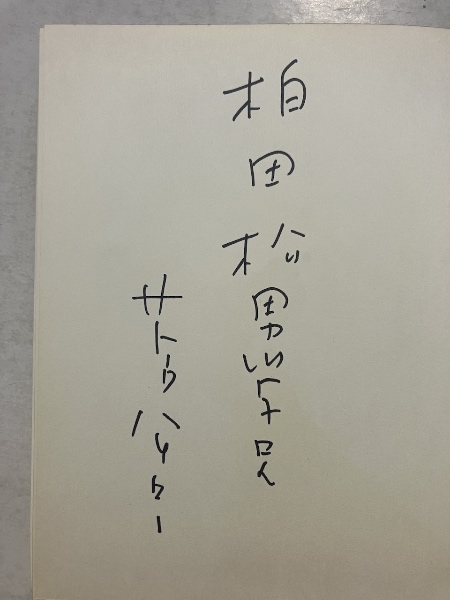 柏田松男学兄
サトウハチロー